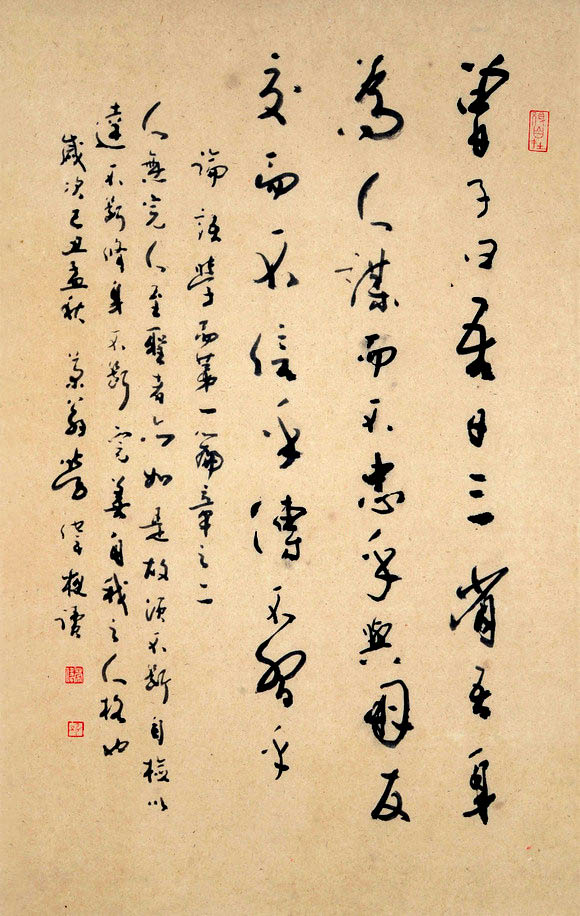 曾子曰吾日三省吾身
為人謀而不忠乎與朋友
交而不信乎傳不習乎
論語學而第一篇章之二
人無完人至聖者亦如是故須不斷自檢以
達不斷修身不斷完善自我之人格也
歲次己丑孟秋 翁勞